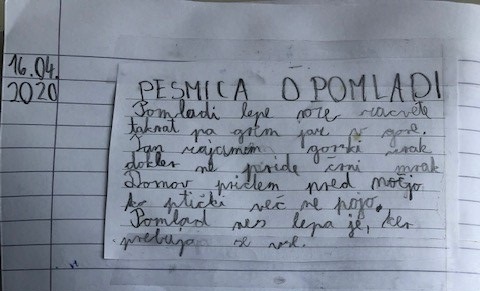 16.04.
2020
PESMICA O POMLADI
Pomladi lepe rože
takrat pa grem jaz v gore.
Tam zajamem gorski zrak
dokler ne pride črni mrak
Domov pridem pred nočjo
ko ptički več ne pojo.
Pomlad res lepa je, ker
prebuja se vse.